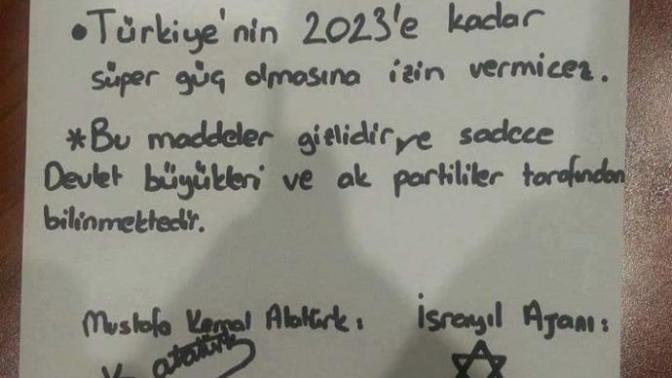 •Türkiye'nin 2023'e kadar
süper güç olmasına izin vermicez.
*Bu maddeler gizlidir ve sadece
Devlet büyükleri ve ak partililer tarafından
bilinmektedir.
Mustafa Kemal Atatürk: İsrayıl Ajanı:
K atatürk